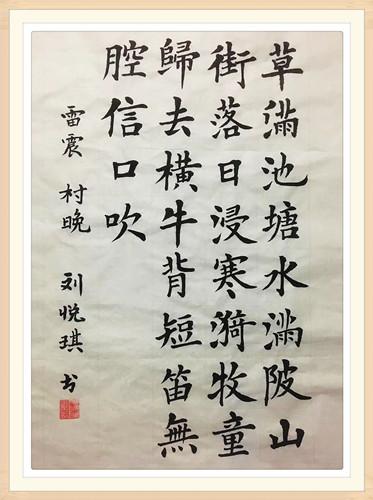 草滿池塘水滿陂山
街落日浸寒漪牧童
歸去橫牛背短笛無
腔信口吹
雷震 村晚 刘悦琪 书